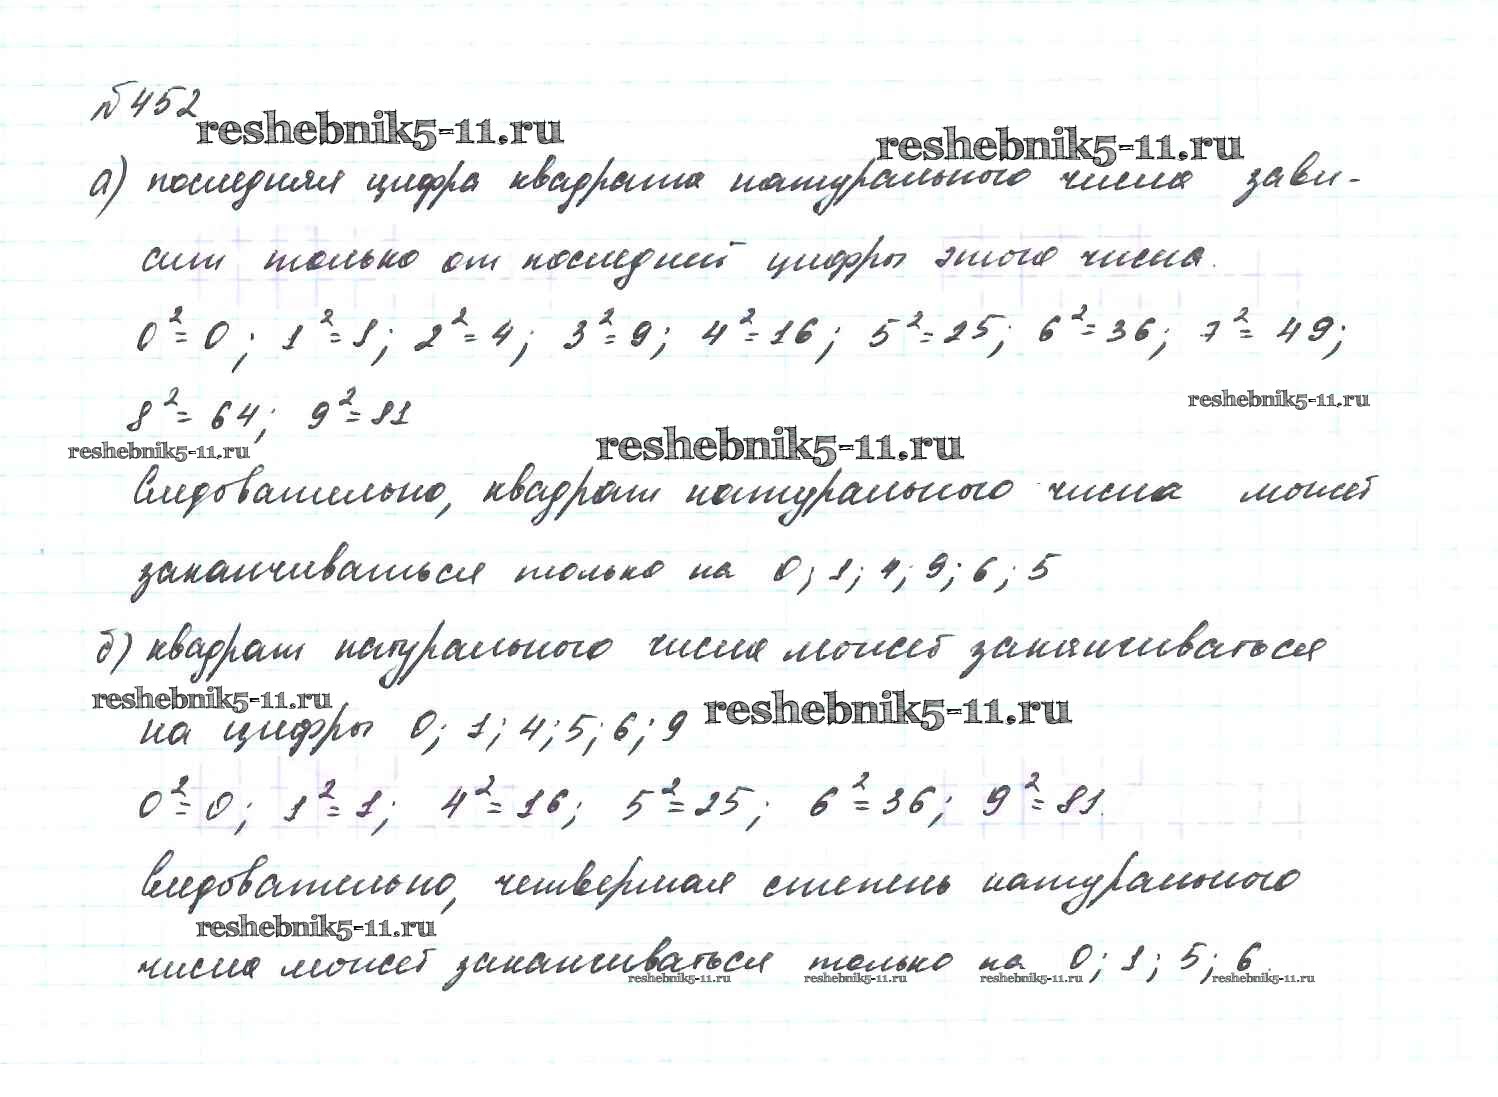 №452
reshebnik5-11.ru
reshebnik5-11.ru
а) последняя цифра квадрата натурального числа зави-
сит только от последней цифры этого числа.
0²=0; 1²=1; 2²=4; 3²=9; 4²=16; 5²=25; 6²=36; 7²=49;
reshebnik5-11.ru
8²=64; 9²=81
reshebnik5-11.ru
reshebnik5-11.ru
Следовательно, квадрат натурального числа может
заканчиваться только на 0; 1; 4; 9; 6; 5
б) квадрат натурального числа может заканчиваться
reshebnik5-11.ru
reshebnik5-11.ru
на цифры 0; 1; 4; 5; 6; 9
0²=0; 1²=1; 4²=16; 5²=25; 6²=36; 9²=81.
Следовательно, четвертая степень натурального
reshebnik5-11.ru
числа может заканчиваться только на 0; 1; 5; 6.
reshebnik5-11.ru reshebnik5-11.ru reshebnik5-11.ru reshebnik5-11.ru